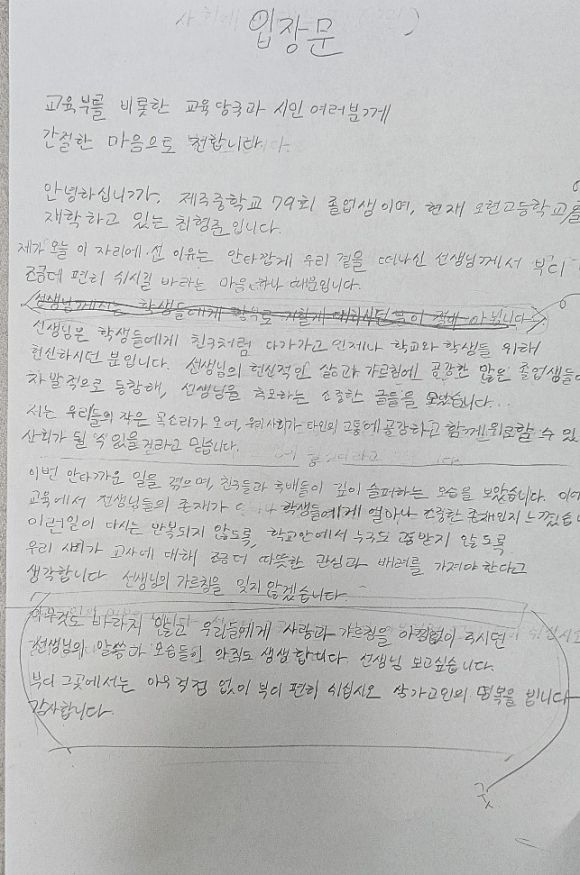 입장문
교육부를 비롯한 교육 당국과 시민 여러분께
간절한 마음으로 전합니다.
안녕하십니까. 제주중학교 79회 졸업생이며, 현재 오현고등학교를
재학하고 있는 최형준입니다.
제가 오늘 이 자리에 선 이유는 안타깝게 우리 곁을 떠나신 선생님께서 부디
조금더 편히 쉬시길 바라는 마음 하나 때문입니다.
선생님께서는 학생들에게
선생님은 학생들에게 친구처럼 다가가고 언제나 학교와 학생들 위해
헌신하시던 분입니다. 선생님의 헌신적인 삶과 가르침에 공감한 많은 졸업생들이
자발적으로 동참해, 선생님을 추모하는 소중한 글들을 모았습니다.
저는 우리들의 작은 목소리가 모여, 우리사회가 타인의 고통에 공감하고 함께 위로할 수 있
사회가 될 수 있을 것이라고 믿습니다.
이번 안타까운 일을 겪으며, 친구들과 후배들이 깊이 슬퍼하는 모습을 보았습니다.
교육에서 선생님들의 존재가 학생들에게 얼마나 소중한 존재인지 느꼈습니
이런일이 다시는 반복되지 않도록, 학교안에서 누구도 고통받지 않도록
우리 사회가 교사에 대해 조금더 따뜻한 관심과 배려를 가져야 한다고
생각합니다 선생님의 가르침을 잊지 않겠습니다.
아무것도 바라지 않고 우리들에게 사랑과 가르침을 아낌없이 주시던
선생님의 말씀과 모습들이 아직도 생생합니다 선생님 보고싶습니다.
부디 그곳에서는 아무 걱정 없이 부디 편히 쉬십시오 삼가고인의 명복을 빕니다
감사합니다.